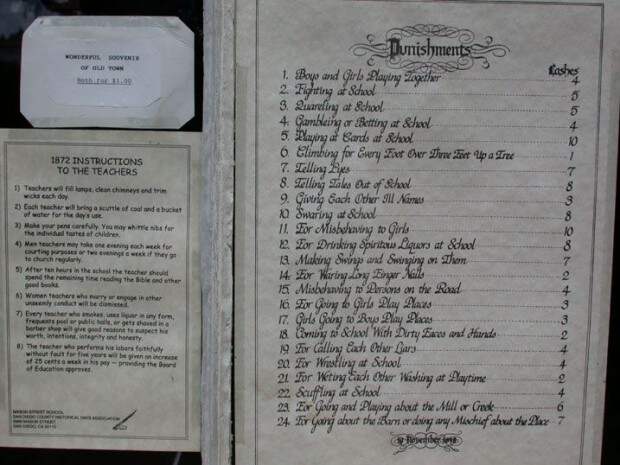 WONDERFUL SOUVENIR
OF OLD TOWN
Both for $1.00
1872 INSTRUCTIONS
TO THE TEACHERS
1) Teachers will fill lamps, clean chimneys and trim
wicks each day.
2) Each teacher will bring a scuttle of coal and a bucket
of water for the day's use.
3) Make your pens carefully. You may whittle nibs for
the individual tastes of children.
4) Men teachers may take one evening each week for
courting purposes or two evenings a week if they go
to church regularly.
5) After ten hours in the school the teacher should
spend the remaining time reading the Bible and other
good books.
6) Women teachers who marry or engage in other
unseemly conduct will be dismissed.
7) Every teacher who smokes, uses liquor in any form,
frequents pool or public halls, or gets shaved in a
barber shop will give good reasons to suspect his
worth, intentions, integrity and honesty.
8) The teacher who performs his labors faithfully
without fault for five years will be given an increase
of 25 cents a week in his pay — providing the Board
of Education approves.
MASON STREET SCHOOL
SAN DIEGO COUNTY HISTORICAL DAYS ASSOCIATION
MASON STREET
SAN DIEGO, CA 92110
Punishments
Lashes
1. Boys and Girls Playing Together 4
2. Fighting at School 5
3. Quareling at School 5
4. Gambleing or Betting at School 4
5. Playing at Cards at School 10
6. Climbing for Every Foot Over Three Feet Up a Tree 1
7. Telling Lyes 7
8. Telling Tales Out of School 8
9. Giving Each Other Ill Names 3
10. Swaring at School 8
11. For Misbehaving to Girls 10
12. For Drinking Spiritous Liquors at School 8
13. Making Swings and Swinging on Them 7
14. For Waring Long Finger Nails 2
15. Misbehaving to Persons on the Road 4
16. For Going to Girls Play Places 3
17. Girls Going to Boys Play Places 3
18. Coming to School With Dirty Faces and Hands 2
19. For Calling Each Other Liars 4
20. For Wrestling at School 4
21. For Weting Each Other Washing at Playtime 2
22. Scuffling at School 4
23. For Going and Playing about the Mill or Creek 6
24. For Going about the Barn or doing any Mischief about the Place 7
10 November